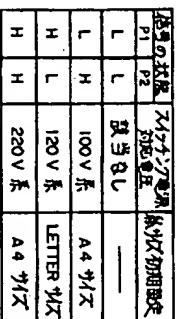 信号の状態 スイッチング電源対応電圧 紙サイズ初期設定
P1 P2
L L 該当なし ——
L H 100V系 A4サイズ
H L 120V系 LETTERサイズ
H H 220V系 A4サイズ